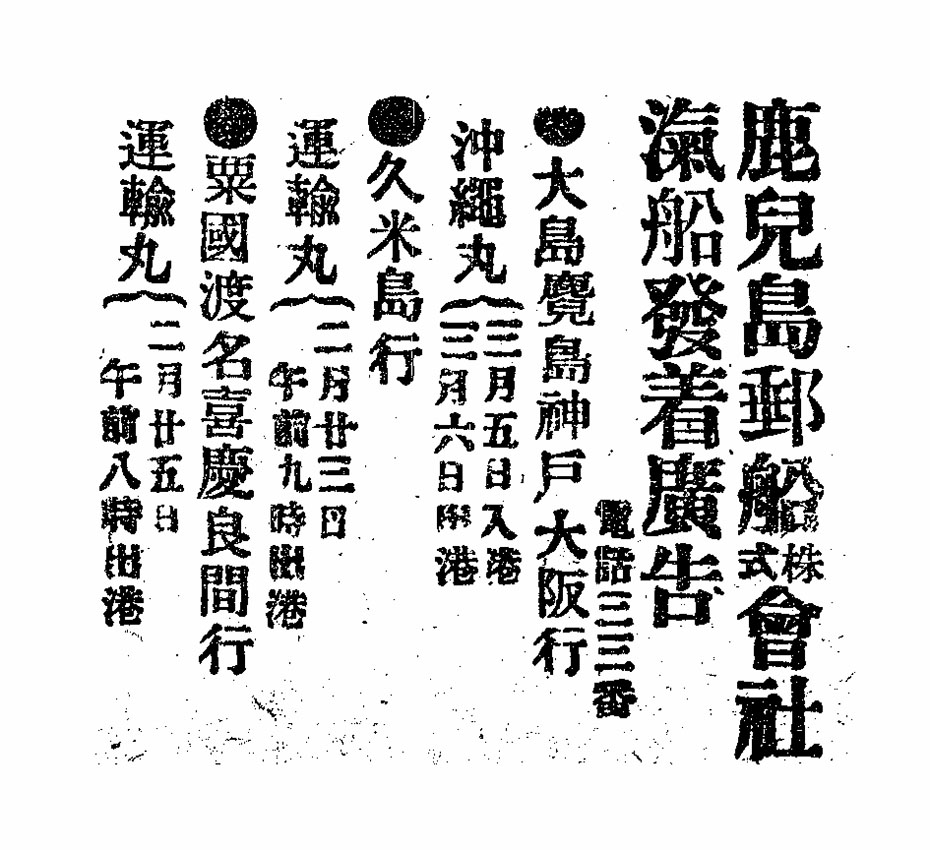 鹿兒島郵船株式會社
滊船發着廣告
電話三三番
●大島麑島神戶大阪行
沖繩丸
三月五日入港
三月六日港
●久米島行
運輸丸
二月廿三日
午前九時出港
●粟國渡名喜慶良間行
運輸丸
二月廿五日
午前八時出港